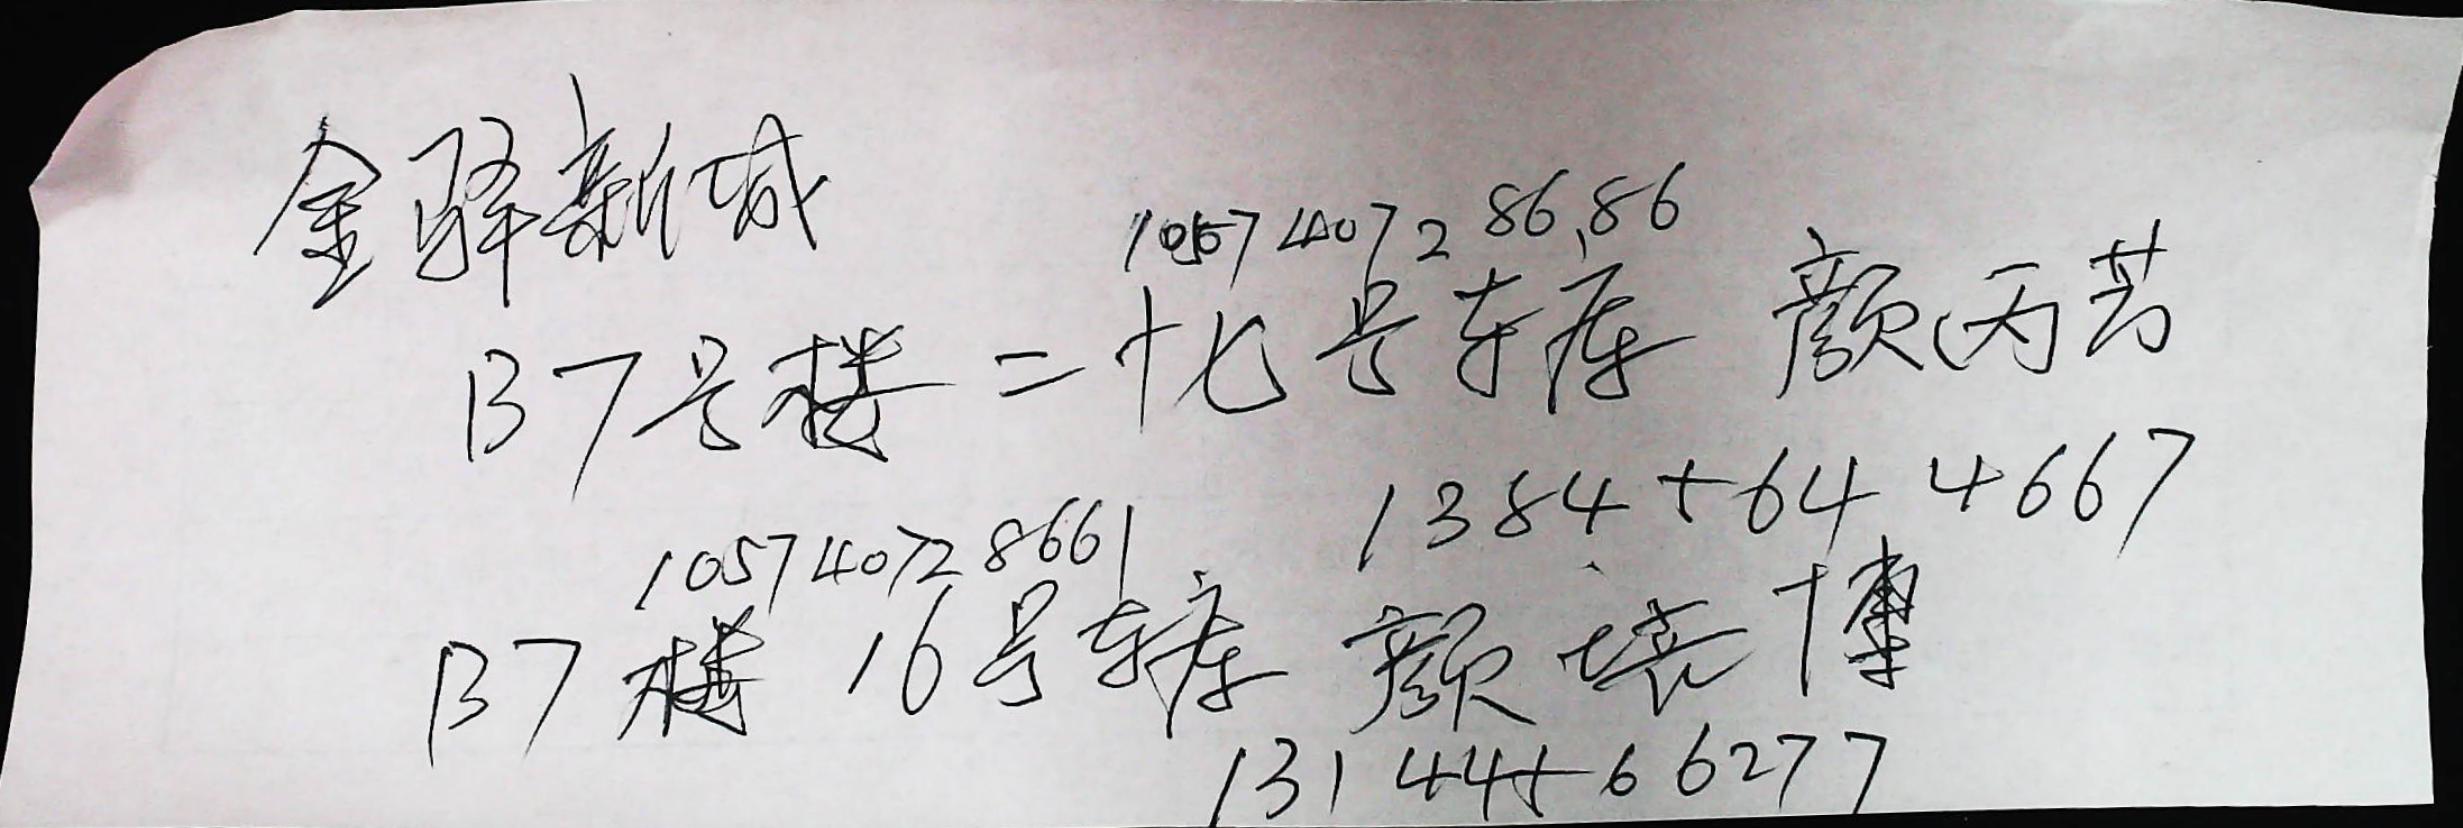 金驿新城
10574072 8686
B7号楼 二十七号车库 颜丙芳
1384564 4667
105740728661
B7楼 16号车库 颜培博
13144566277